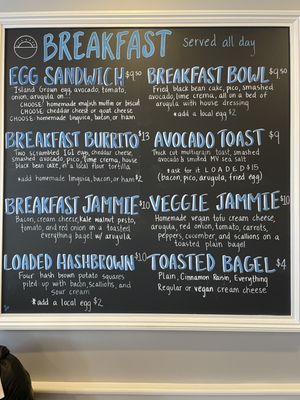 BREAKFAST served all day
EGG SANDWICH $9.50
Island Grown egg, avocado, tomato,
onion, arugula on...
CHOOSE: homemade english muffin or biscuit
CHOOSE: cheddar cheese or goat cheese
CHOOSE: homemade linguica, bacon, or ham
BREAKFAST BOWL $9.50
Fried black bean cake, pico, smashed
avocado, lime crema, all on a bed of
arugula with house dressing
* add a local egg $2
BREAKFAST BURRITO $13
Two scrambled IGI eggs, cheddar cheese,
smashed avocado, pico, lime crema, house
black bean cake, in a local flour tortilla
* add homemade linguica, bacon, or ham $2
AVOCADO TOAST $9
Thick cut multigrain toast, smashed
avocado & smoked MV sea salt
* ask for it LOADED $15
(bacon, pico, arugula, fried egg)
BREAKFAST JAMMIE $10
Bacon, cream cheese, kale walnut pesto,
tomato, and red onion on a toasted
everything bagel w/ arugula
VEGGIE JAMMIE $10
Homemade vegan tofu cream cheese,
arugula, red onion, tomato, carrots,
peppers, cucumber, and scallions on a
toasted plain bagel
LOADED HASHBROWN $10
Four hash brown potato squares
piled up with bacon, scallions, and
sour cream
* add a local egg $2
TOASTED BAGEL $4
Plain, Cinnamon Raisin, Everything
Regular or vegan cream cheese